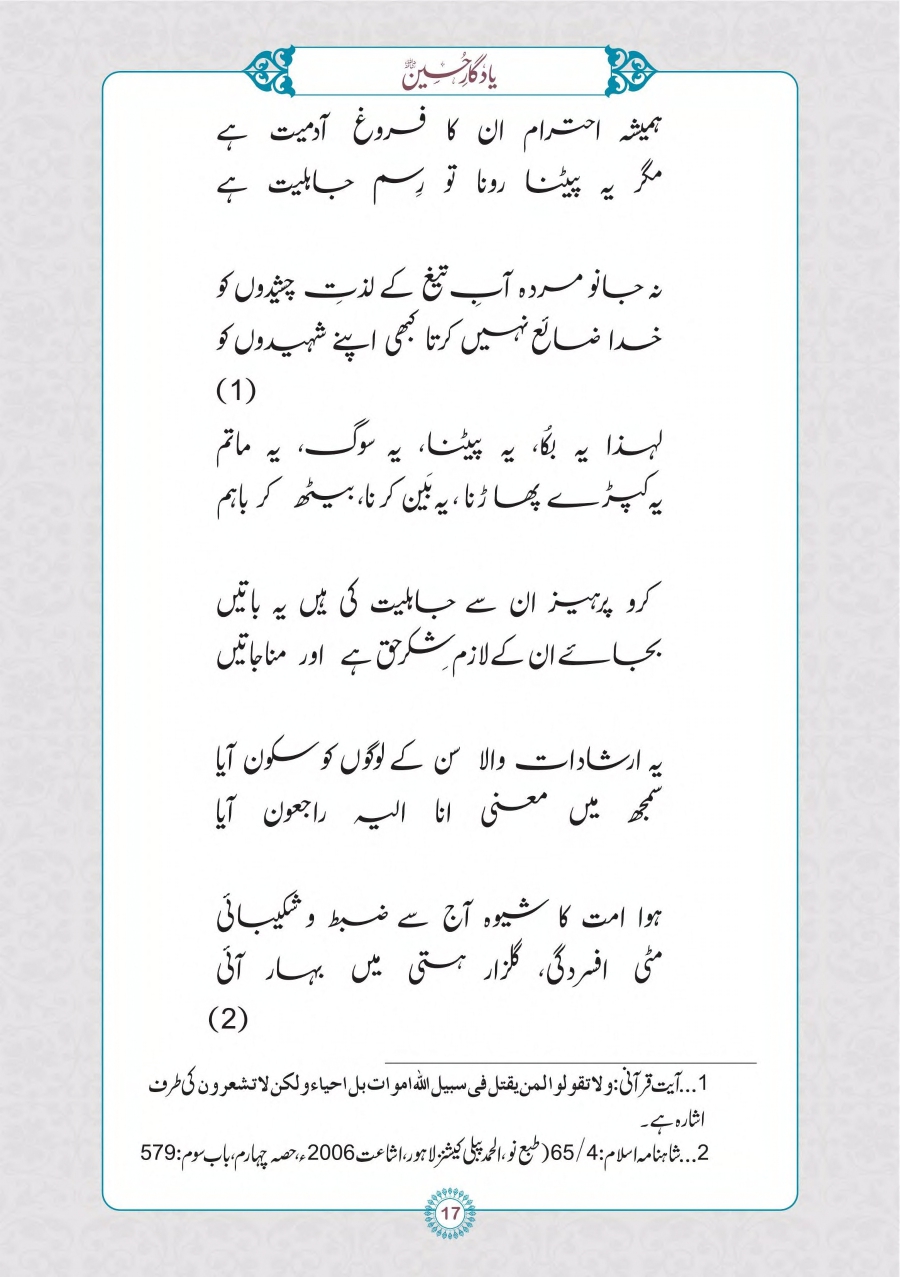 یادگارِ حُسین ﷺ
ہمیشہ احترام ان کا فروغ آدمیت ہے
مگر یہ پیٹنا رونا تو رِسم جاہلیت ہے
نہ جانو مردہ آبِ تیغ کے لذتِ چشیدوں کو
خدا ضائع نہیں کرتا کبھی اپنے شہیدوں کو
(1)
لہذا یہ بکُا، یہ پیٹنا، یہ سوگ، یہ ماتم
یہ کپڑے پھاڑنا، یہ بَین کرنا، بیٹھ کر باہم
کرو پرہیز ان سے جاہلیت کی ہیں یہ باتیں
بجائے ان کے لازم ِشکر حق ہے اور مناجاتیں
یہ ارشادات والا سن کے لوگوں کو سکون آیا
سمجھ میں معنی انا الیہ راجعون آیا
ہوا امت کا شیوہ آج سے ضبط و شکیبائی
مٹی افسردگی، گلزار ہستی میں بہار آئی
(2)
1...آیت قرآنی: ولا تقولوا لمن یقتل فی سبیل اللہ اموات بل احیاء ولکن لا تشعرون کی طرف
اشارہ ہے۔
2...شاہنامہ اسلام: 4/ 65 (طبع نو، الحمد پبلی کیشنز لاہور، اشاعت 2006ء، حصہ چہارم، باب سوم: 579
17